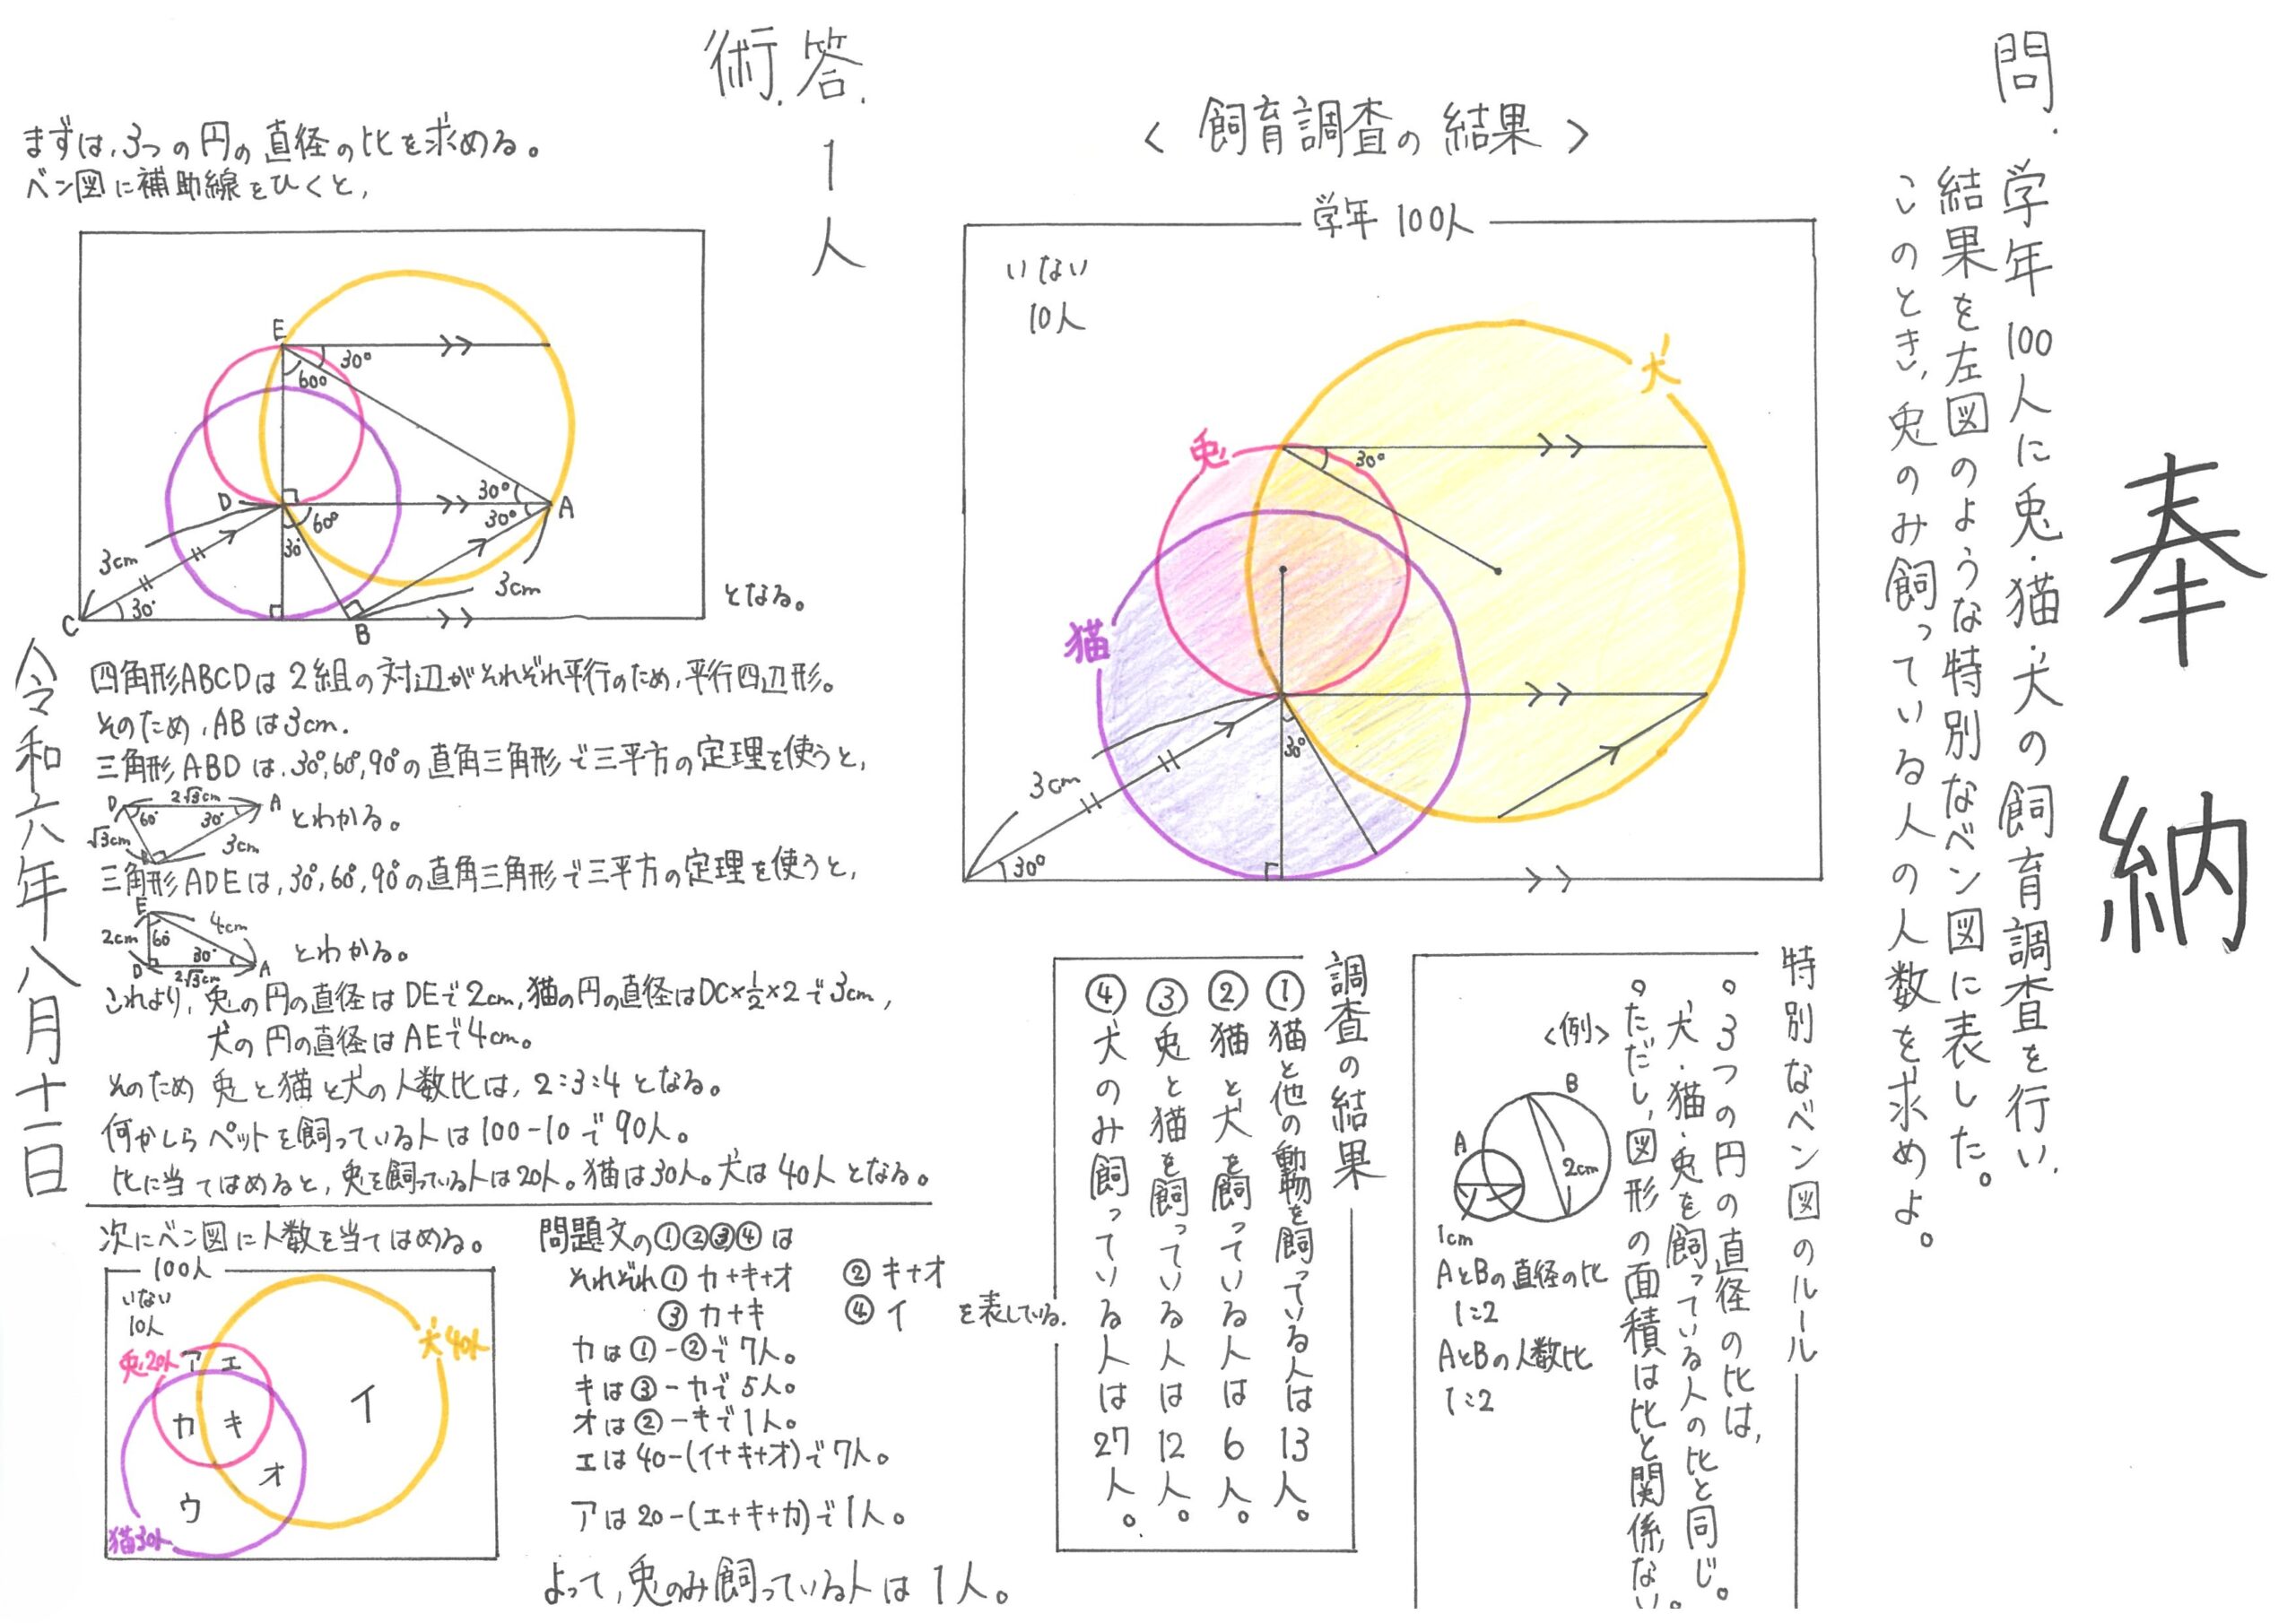 奉納
問.
学年100人に兎・猫・犬の飼育調査を行い、
結果を左図のような特別なベン図に表した。
このとき、兎のみ飼っている人の人数を求めよ。
<飼育調査の結果>
学年 100人
いない
10人
犬
兎
猫
30°
30°
3cm
30°
特別なベン図のルール
。3つの円の直径の比は、
犬・猫・兎を飼っている人の比と同じ。
。ただし、図形の面積は比と関係ない。
<例>
A
B
1cm
2cm
AとBの直径の比
1:2
AとBの人数比
1:2
調査の結果
①猫と他の動物を飼っている人は13人。
②猫と犬を飼っている人は6人。
③兎と猫を飼っている人は12人。
④犬のみ飼っている人は27人。
答. 1人
術.
まずは、3つの円の直径の比を求める。
ベン図に補助線をひくと、
E
30°
60°
D
30°
30°
A
60°
30°
3cm
3cm
C
30°
B
となる。
四角形ABCDは2組の対辺がそれぞれ平行のため、平行四辺形。
そのため、ABは3cm.
三角形ABDは、30°,60°,90°の直角三角形で三平方の定理を使うと、
D
2√3cm
A
60°
30°
√3cm
3cm
とわかる。
三角形ADEは、30°,60°,90°の直角三角形で三平方の定理を使うと、
E
4cm
2cm
60°
30°
D
2√3cm
A
とわかる。
これより、兎の円の直径はDEで2cm,猫の円の直径はDC×1/2×2で3cm,
犬の円の直径はAEで4cm。
そのため兎と猫と犬の人数比は、2:3:4となる。
何かしらペットを飼っている人は100-10で90人。
比に当てはめると、兎を飼っている人は20人。猫は30人。犬は40人となる。
次にベン図に人数を当てはめる。
100人
いない
10人
兎20人
犬40人
猫30人
ア
エ
イ
カ
キ
オ
ウ
問題文の①②③④は
それぞれ①カ+キ+オ ②キ+オ
③カ+キ ④イ を表している.
カは①-②で7人。
キは③-カで5人。
オは②-キで1人。
エは40-(イ+キ+オ)で7人。
アは20-(エ+キ+カ)で1人。
よって、兎のみ飼っている人は1人。
令和六年八月十一日